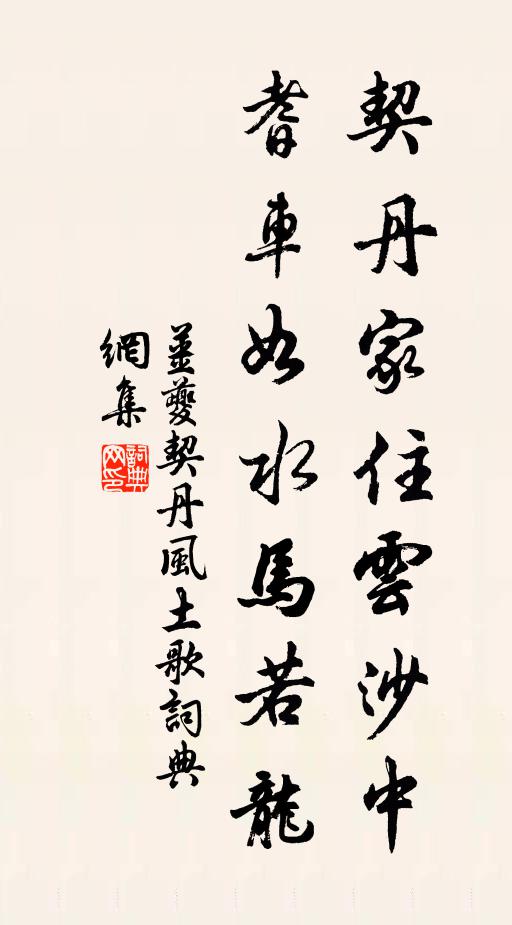 契丹家住雲沙中
耆車如水馬若龍
薑夔契丹風土歌詞典
網集
詞典
网印